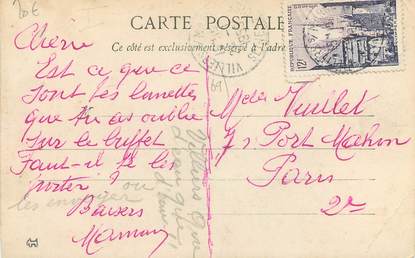 20€
CARTE POSTALE
Ce côté est exclusivement réservé à l'adresse
REPUBLIQUE FRANÇAISE
12F
Chérie
Est ce que ce
sont les lunette
que tu as oublié
sur le buffet
Faut-il te les
porter ? ou
les envoyer
Baisers
Maman
Melle Vuillet
7 Port Mahon
Paris
2e